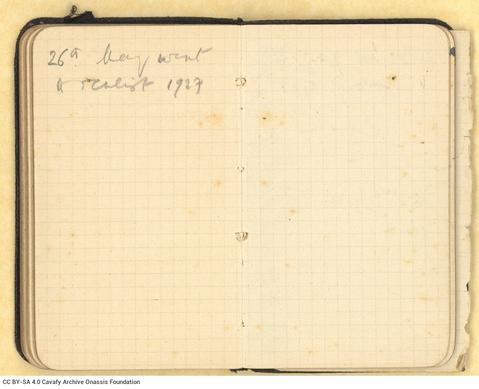 26th May went
to dentist 1927
CC BY-SA 4.0 Cavafy Archive Onassis Foundation